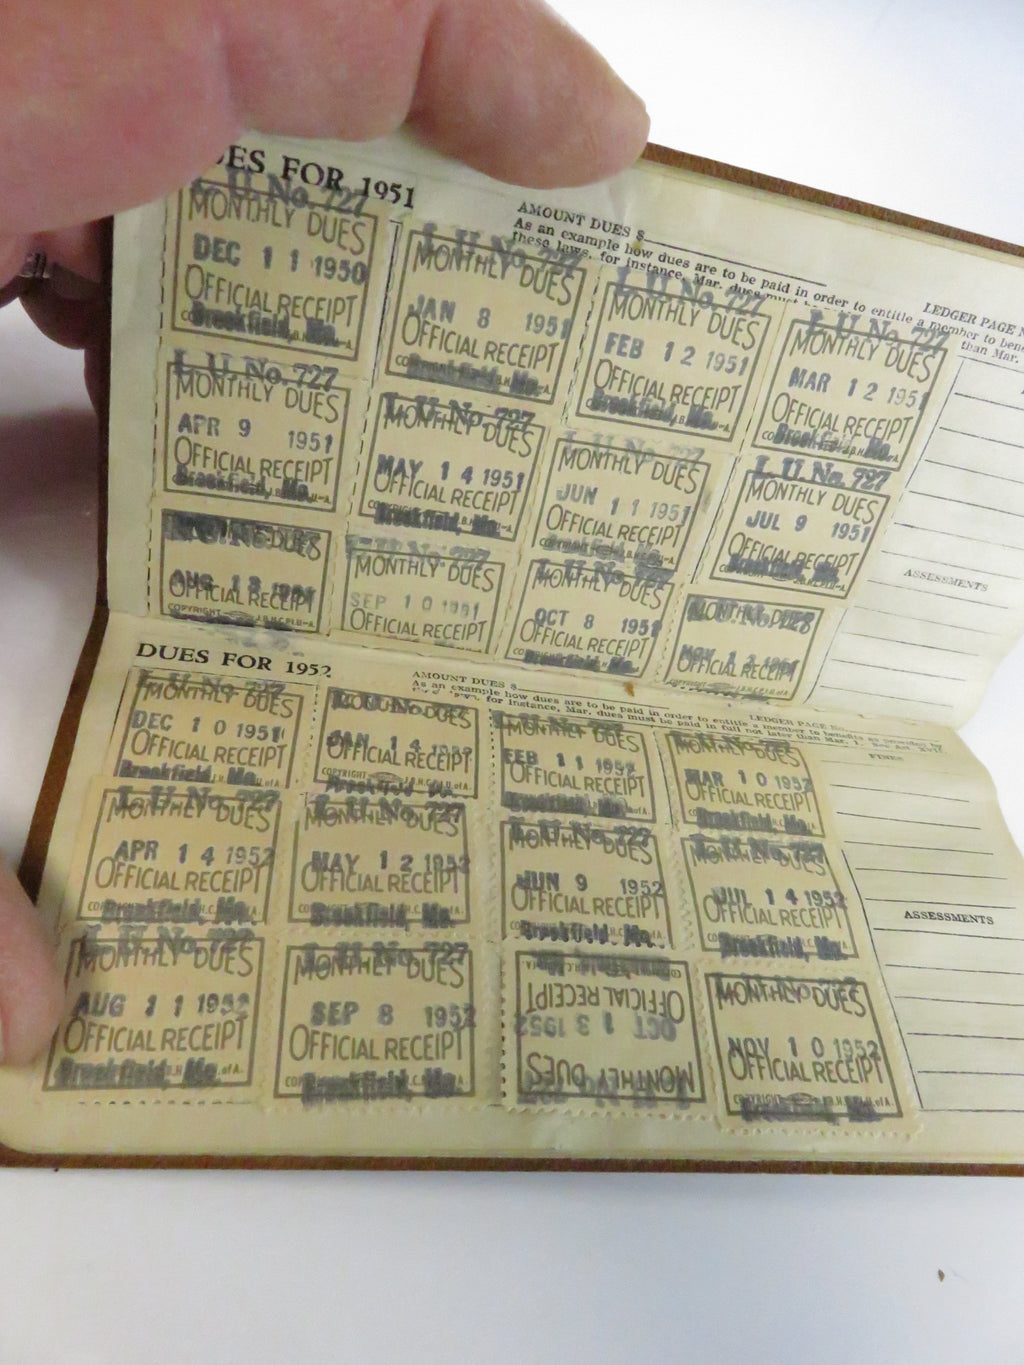 DUES FOR 1951
AMOUNT DUES $
As an example how dues are to be paid in order to entitle a member to
these laws, for instance, Mar. dues must
LEDGER PAGE
than Mar.
L. U. No. 727
MONTHLY DUES
DEC 11 1950
OFFICIAL RECEIPT
Brookfield, Mo.
L. U. No. 727
MONTHLY DUES
JAN 8 1951
OFFICIAL RECEIPT
L. U. No. 727
MONTHLY DUES
FEB 12 1951
OFFICIAL RECEIPT
Brookfield, Mo.
L. U. No. 727
MONTHLY DUES
MAR 12 1951
OFFICIAL RECEIPT
Brookfield, Mo.
L. U. No. 727
MONTHLY DUES
APR 9 1951
OFFICIAL RECEIPT
Brookfield, Mo.
L. U. No. 727
MONTHLY DUES
MAY 14 1951
OFFICIAL RECEIPT
Brookfield, Mo.
MONTHLY DUES
JUN 11 1951
OFFICIAL RECEIPT
L. U. No. 727
MONTHLY DUES
JUL 9 1951
OFFICIAL RECEIPT
Brookfield, Mo.
AUG 13 1951
OFFICIAL RECEIPT
COPYRIGHT
MONTHLY DUES
SEP 10 1951
OFFICIAL RECEIPT
L. U. No. 727
MONTHLY DUES
OCT 8 1951
OFFICIAL RECEIPT
Brookfield, Mo.
MONTHLY DUES
NOV 12 1951
OFFICIAL RECEIPT
ASSESSMENTS
DUES FOR 1952
AMOUNT DUES $
As an example how dues are to be paid in order to entitle a member to benefits as provided by
for instance, Mar. dues must be paid in full not later than Mar. 1.
LEDGER PAGE No.
FINES
L. U. No. 727
MONTHLY DUES
DEC 10 1951
OFFICIAL RECEIPT
Brookfield, Mo.
MONTHLY DUES
JAN 14 1952
OFFICIAL RECEIPT
COPYRIGHT
L. U. No. 727
MONTHLY DUES
FEB 11 1952
OFFICIAL RECEIPT
Brookfield, Mo.
MONTHLY DUES
MAR 10 1952
OFFICIAL RECEIPT
Brookfield, Mo.
L. U. No. 727
MONTHLY DUES
APR 14 1952
OFFICIAL RECEIPT
Brookfield, Mo.
L. U. No. 727
MONTHLY DUES
MAY 12 1952
OFFICIAL RECEIPT
Brookfield, Mo.
L. U. No. 727
MONTHLY DUES
JUN 9 1952
OFFICIAL RECEIPT
Brookfield, Mo.
L. U. No. 727
MONTHLY DUES
JUL 14 1952
OFFICIAL RECEIPT
Brookfield, Mo.
L. U. No. 727
MONTHLY DUES
AUG 11 1952
OFFICIAL RECEIPT
Brookfield, Mo.
L. U. No. 727
MONTHLY DUES
SEP 8 1952
OFFICIAL RECEIPT
Brookfield, Mo.
MONTHLY DUES
OCT 13 1952
OFFICIAL RECEIPT
MONTHLY DUES
NOV 10 1952
OFFICIAL RECEIPT
Brookfield, Mo.
ASSESSMENTS